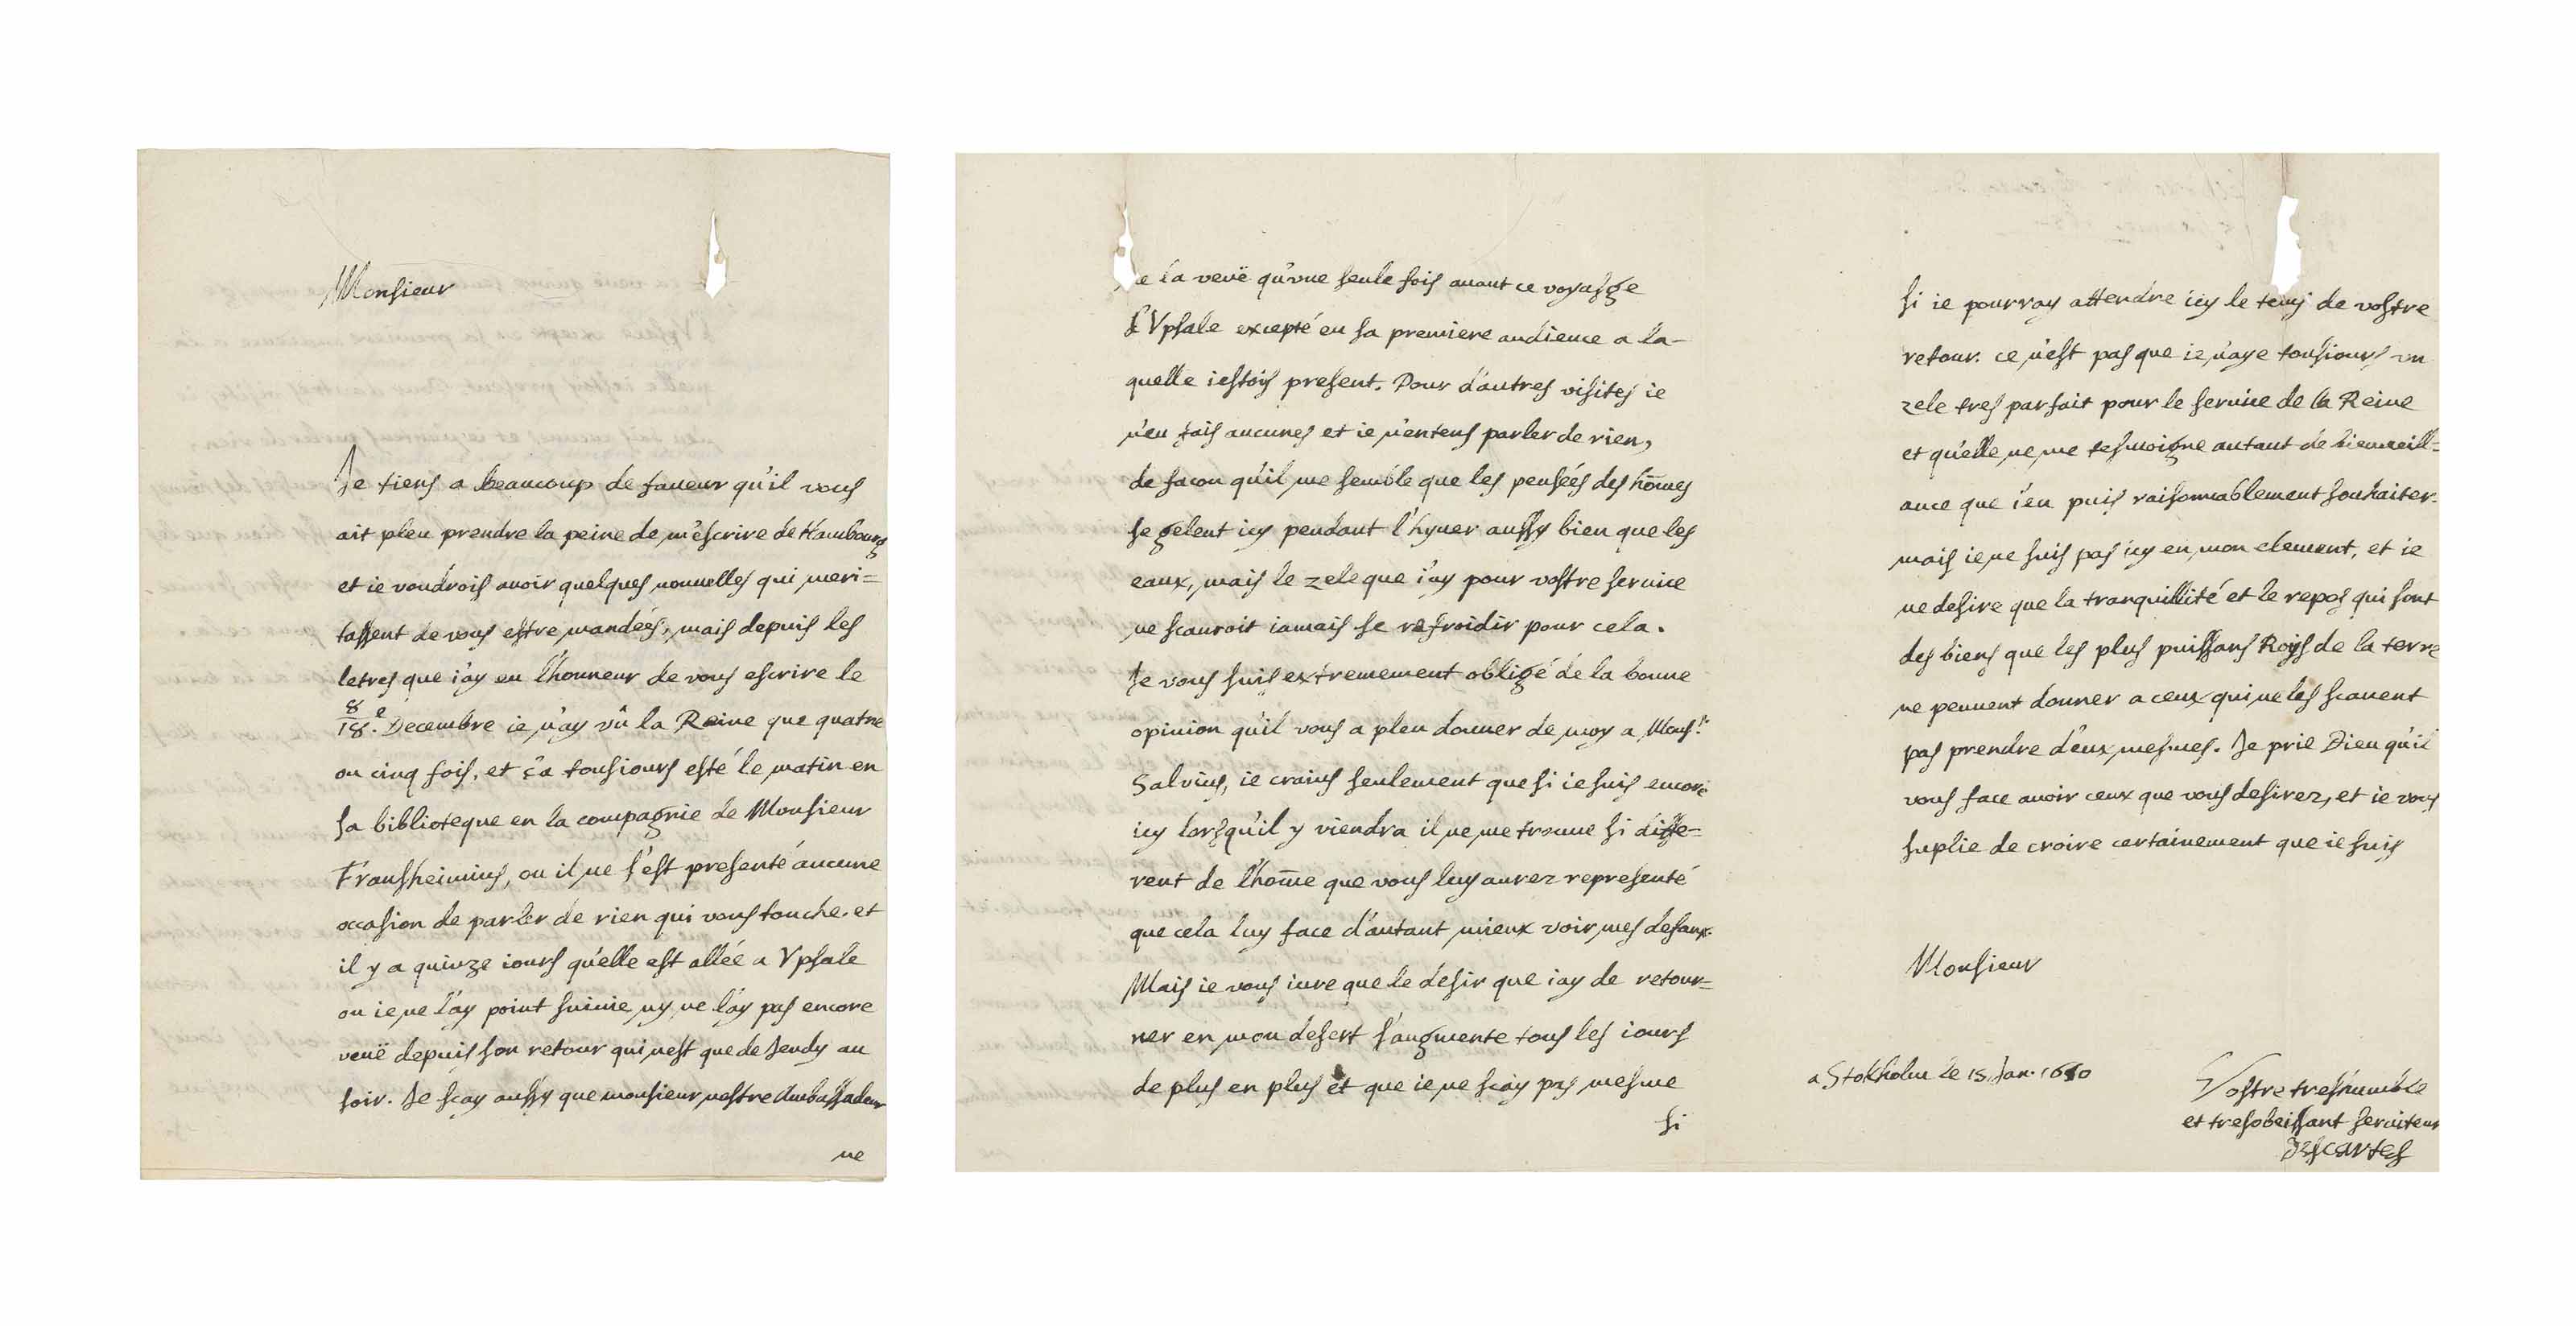 Monsieur
Je tiens a beaucoup de faueur qu'il vous
ait pleu prendre la peine de m'escrire de Hambourg
et ie voudrois auoir quelques nouuelles qui meri=
tassent de vous estre mandées, mais depuis les
letres que i'ay eu l'honneur de vous escrire le
8/18.e Decembre ie n'ay vû la Reine que quatre
ou cinq fois, et ç'a tousiours esté le matin en
sa biblioteque en la compagnie de Monsieur
Fransheimius, ou il ne s'est presenté aucune
occasion de parler de rien qui vous touche. et
il y a quinze iours qu'elle est allée a Vpsale
ou ie ne l'ay point suiuie, ny ne l'ay pas encore
veuë depuis son retour qui n'est que de Jeudy au
soir. Je sçay aussy que monsieur nostre Ambassadeur
ne
e la veuë qu'vne seule fois auant ce voyasge
d'Vpsale excepté en sa premiere audience a la-
quelle i'estois present. Pour d'autres visites ie
n'en fais aucunes et ie n'entens parler de rien,
de facon qu'il me semble que les pensées des hom̄es
se gelent icy pendant l'hyuer aussy bien que les
eaux, mais le zele que i'ay pour vostre seruice
ne scauroit iamais se refroidir pour cela.
Je vous suis extremement obligé de la bonne
opinion qu'il vous a pleu donner de moy a Monsr.
Salvius, ie crains seulement que si ie suis encore
icy lorsqu'il y viendra il ne me trouue si diffe=
rent de l'hom̄e que vous luy aurez representé
que cela luy face d'autant mieux voir mes defaux.
Mais ie vous iure que le desir que i'ay de retour=
ner en mon desert s'augmente tous les iours
de plus en plus et que ie ne sçay pas mesme
si
si ie pourray attendre icy le tems de vostre
retour. ce n'est pas que ie n'aye tousiours vn
zele tres parfait pour le seruice de la Reine
et qu'elle ne me tesmoigne autant de bienueill=
ance que i'en puis raisonnablement souhaiter.
mais ie ne suis pas icy en mon element, et ie
ne desire que la tranquillité et le repos qui sont
des biens que les plus puissans Roys de la terre
ne peuuent donner a ceux qui ne les scauent
pas prendre d'eux mesmes. Je prie Dieu qu'il
vous face auoir ceux que vous desirez, et ie vous
suplie de croire certainement que ie suis
Monsieur
a Stokholm le 15 Jan. 1650
Vostre treshumble
et tresobeissant seruiteur
Descartes